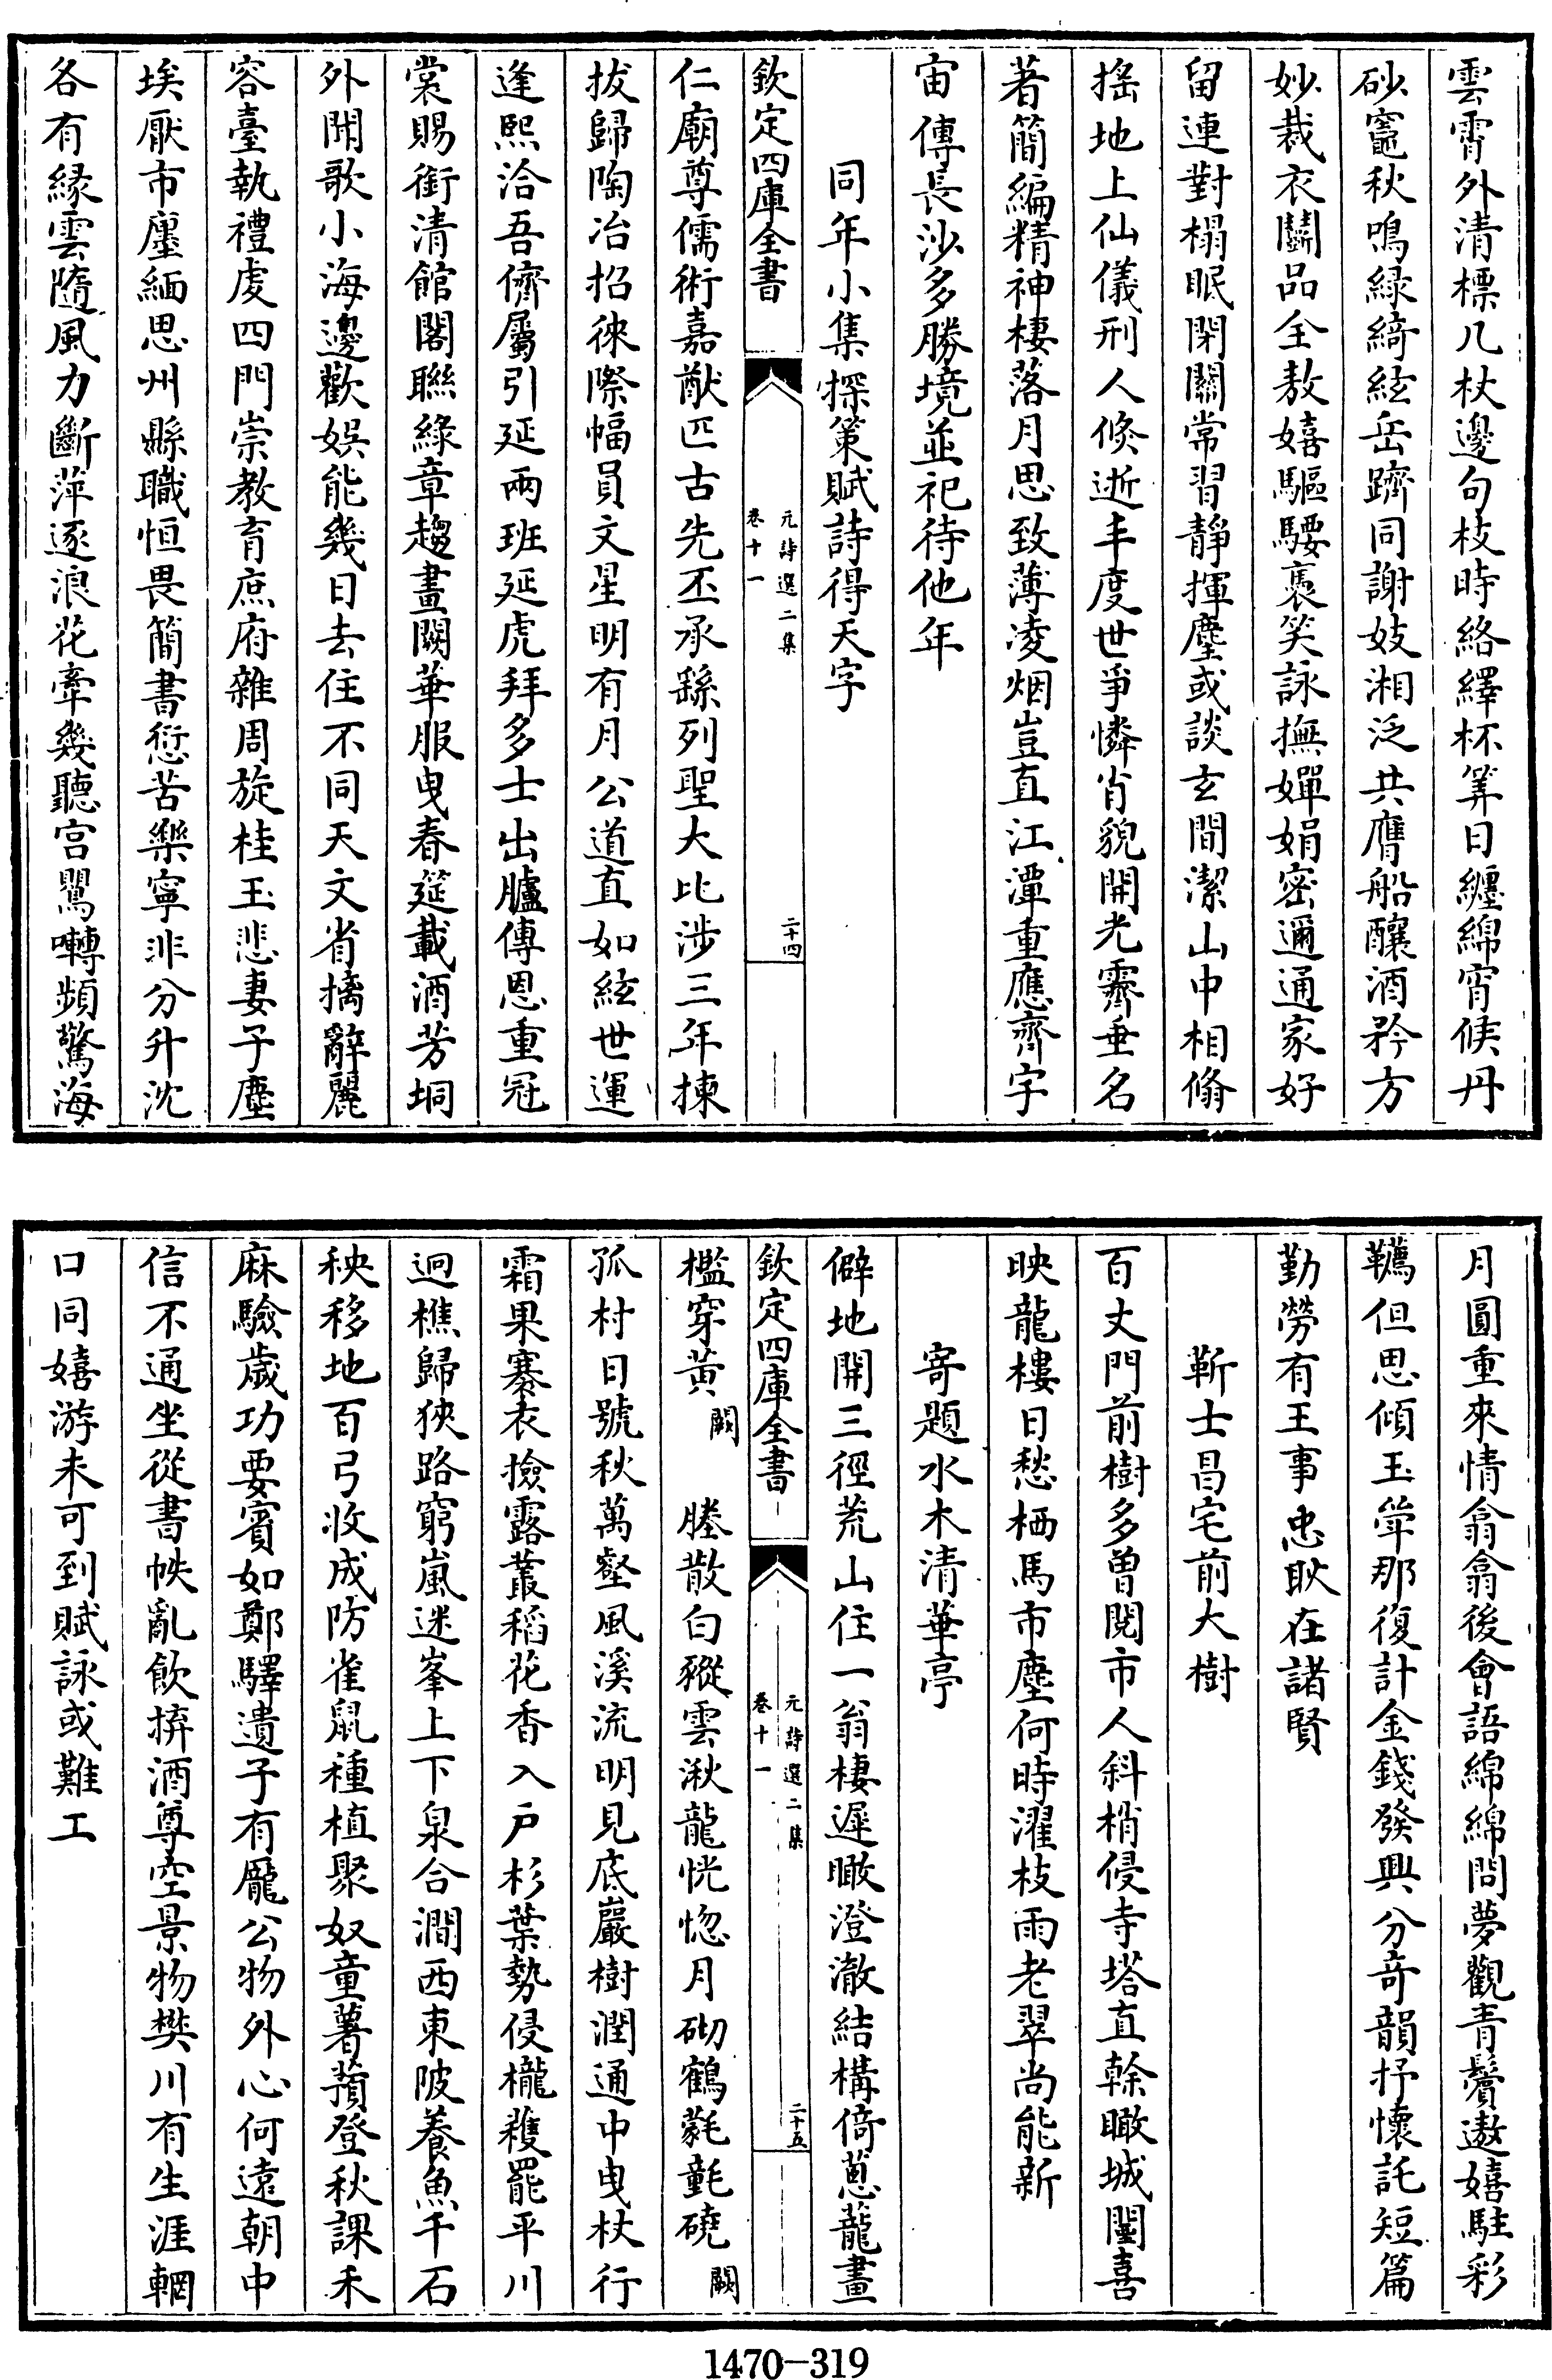 雲霄外清標几杖邊句枝時絡繹杯筭日纏綿宵候丹
砂竈秋鳴緑綺絃岳躋同謝妓湘泛共膺船釀酒矜方
妙裁衣鬭品全敖嬉驅騕褭笑詠撫嬋娟密邇通家好
留連對榻眠閉關常習靜揮麈或談玄間潔山中相翛
搖地上仙儀刑人倐逝丰度世爭憐肖貌開光霽垂名
著簡編精神棲落月思致薄凌烟豈直江潭重應齊宇
宙傳長沙多勝境並祀待他年
同年小集探策賦詩得天字
欽定四庫全書
元詩選二集
卷十一
二十四
仁廟尊儒術嘉猷匹古先丕承繇列聖大比涉三年揀
拔歸陶冶招徠際幅員文星明有月公道直如絃世運
逢熙洽吾儕屬引延兩班延虎拜多士出臚傳恩重冠
裳賜銜清館閣聯緑章趨畫闕華服曳春筵載酒芳坰
外開歌小海邊歡娛能幾日去住不同天文省摛辭麗
容臺執禮虔四門崇教育庶府雜周旋桂玉悲妻子塵
埃厭市廛緬思州縣職恒畏簡書愆苦樂寧非分升沈
各有緣雲隨風力斷萍逐浪花牽幾聽宫鶯囀頻驚海
月圓重來情翕翕後會語綿綿問夢觀青鬢遨嬉駐彩
韉但思傾玉斝那復計金錢發興分竒韻抒懷託短篇
勤勞有王事忠耿在諸賢
靳士昌宅前大樹
百丈門前樹多曽閱市人斜梢侵寺塔直榦瞰城闉喜
映龍樓日愁栖馬市塵何時濯枝雨老翠尚能新
寄題水木清華亭
僻地開三徑荒山住一翁棲遲瞰澄澈結構倚蔥蘢畫
欽定四庫全書
元詩選二集
卷十一
二十五
檻穿黄闕塍散白豵雲湫龍恍惚月砌鶴氃氋磽闕
孤村日號秋萬壑風溪流明見底巖樹潤通中曳杖行
霜果褰衣撿露叢稻花香入户杉葉勢侵櫳穫罷平川
迥樵歸狹路窮嵐迷峯上下泉合澗西東陂養魚千石
秧移地百弓收成防雀鼠種植聚奴童薯蕷登秋課禾
麻驗歲功要賓如鄭驛遺子有龐公物外心何遠朝中
信不通坐從書帙亂飲拚酒尊空景物樊川有生涯輞
口同嬉游未可到賦詠或難工
1470-319